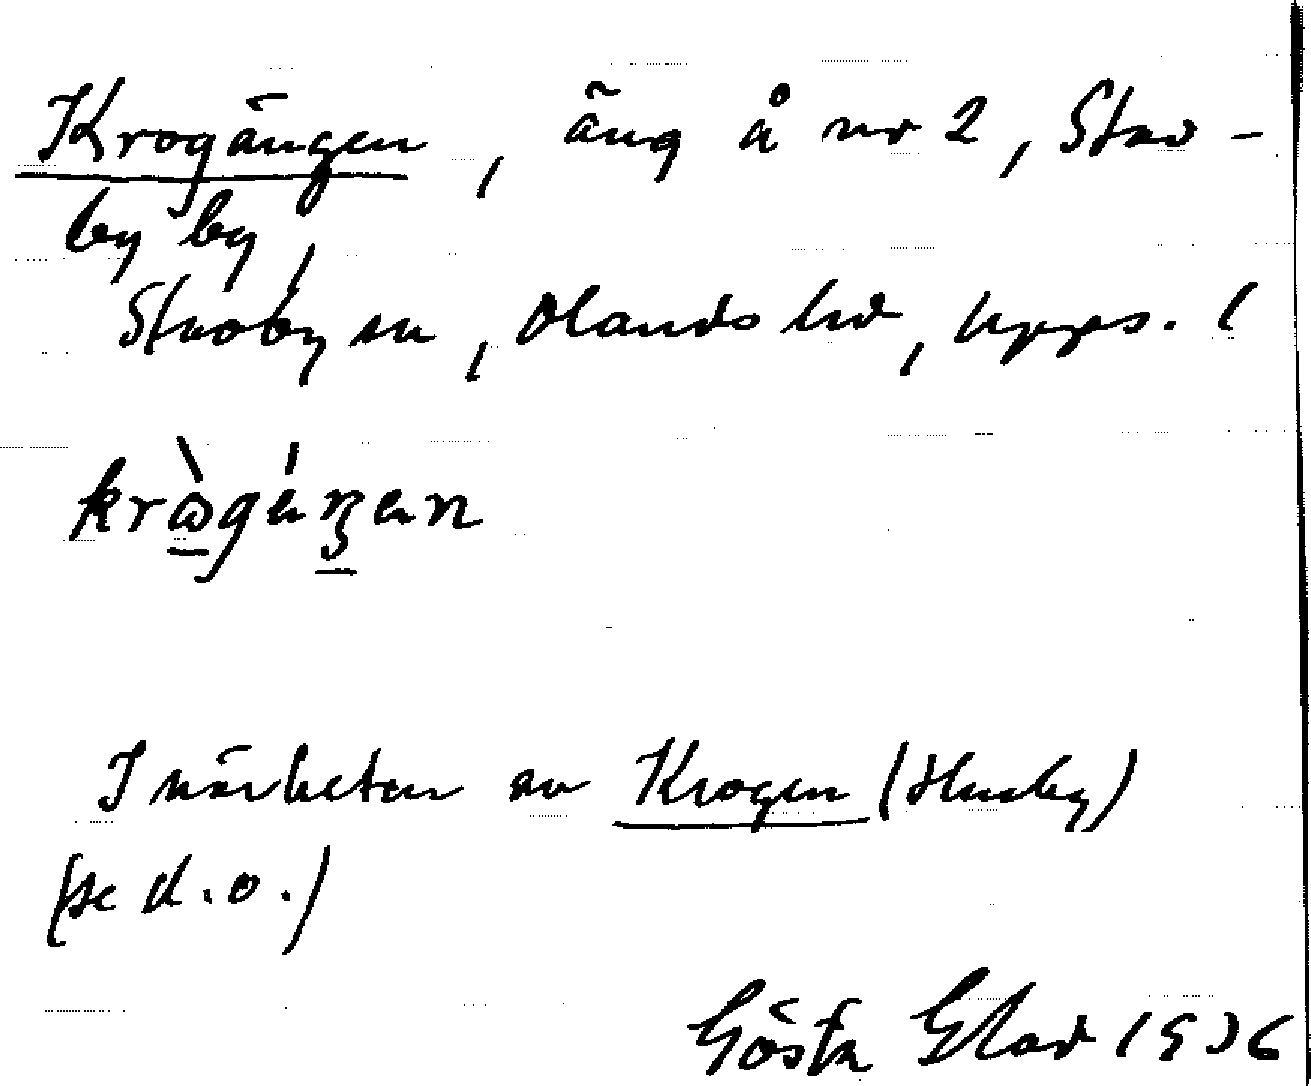 Krogängen, äng å nr 2, Stav-
by by,
Stavby sn, Olands hd, Upps. l
I närheten av Krogen (Husby)
(se d.o.)
Gösta Elav 1936